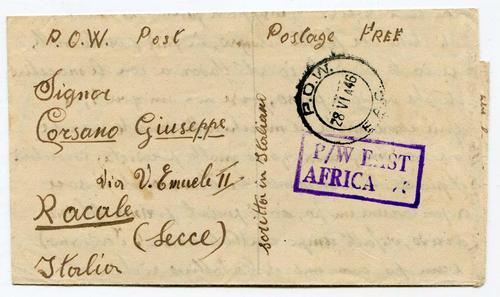 P.O.W. Post Postage FREE
Signor
Corsano Giuseppe
Via V. Emuele II
Racale
(Lecce)
Italia
scritto in Italiano
P.O.W.
28 VI 46
P/W EAST
AFRICA